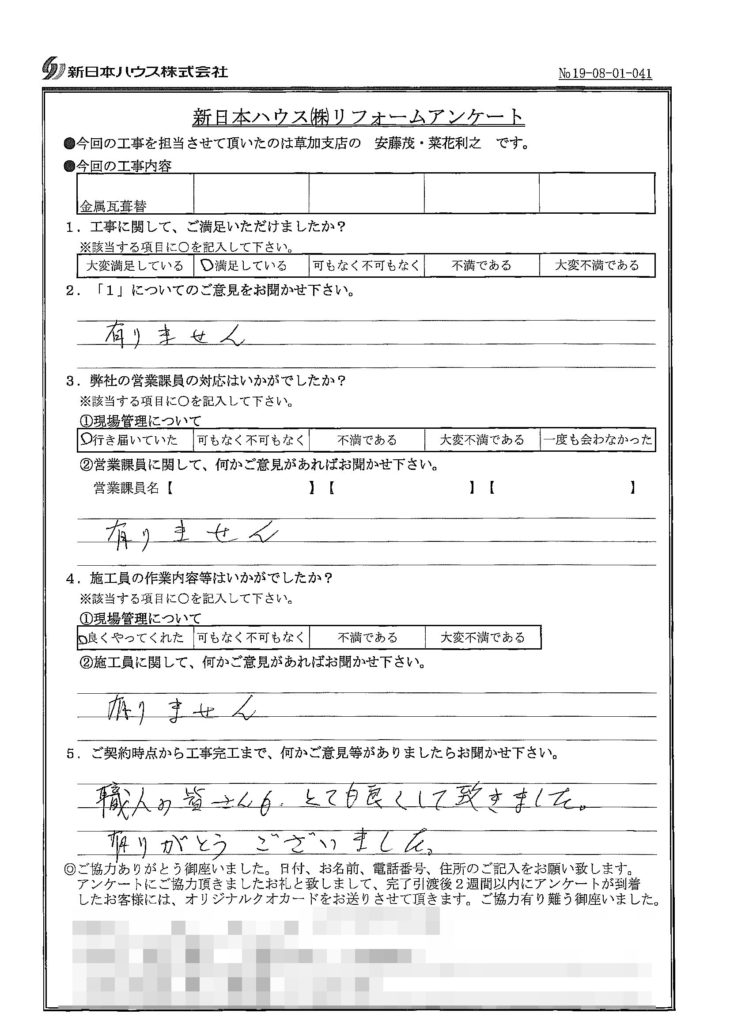 新日本ハウス株式会社
№19-08-01-041
新日本ハウス㈱リフォームアンケート
●今回の工事を担当させて頂いたのは草加支店の 安藤茂・菜花利之 です。
●今回の工事内容
金属瓦葺替
1．工事に関して、ご満足いただけましたか？
※該当する項目に○を記入して下さい。
大変満足している 満足している 可もなく不可もなく 不満である 大変不満である
2．「1」についてのご意見をお聞かせ下さい。
有りません
3．弊社の営業課員の対応はいかがでしたか？
※該当する項目に○を記入して下さい。
①現場管理について
行き届いていた 可もなく不可もなく 不満である 大変不満である 一度も会わなかった
②営業課員に関して、何かご意見があればお聞かせ下さい。
営業課員名【 】【 】【 】
有りません
4．施工員の作業内容等はいかがでしたか？
※該当する項目に○を記入して下さい。
①現場管理について
良くやってくれた 可もなく不可もなく 不満である 大変不満である
②施工員に関して、何かご意見があればお聞かせ下さい。
有りません
5．ご契約時点から工事完工まで、何かご意見等がありましたらお聞かせ下さい。
職人の皆さんも、とても良くして致きました。
有りがとうございました。
◎ご協力ありがとう御座いました。日付、お名前、電話番号、住所のご記入をお願い致します。
アンケートにご協力頂きましたお礼と致しまして、完了引渡後２週間以内にアンケートが到着
したお客様には、オリジナルクオカードをお送りさせて頂きます。ご協力有り難う御座いました。